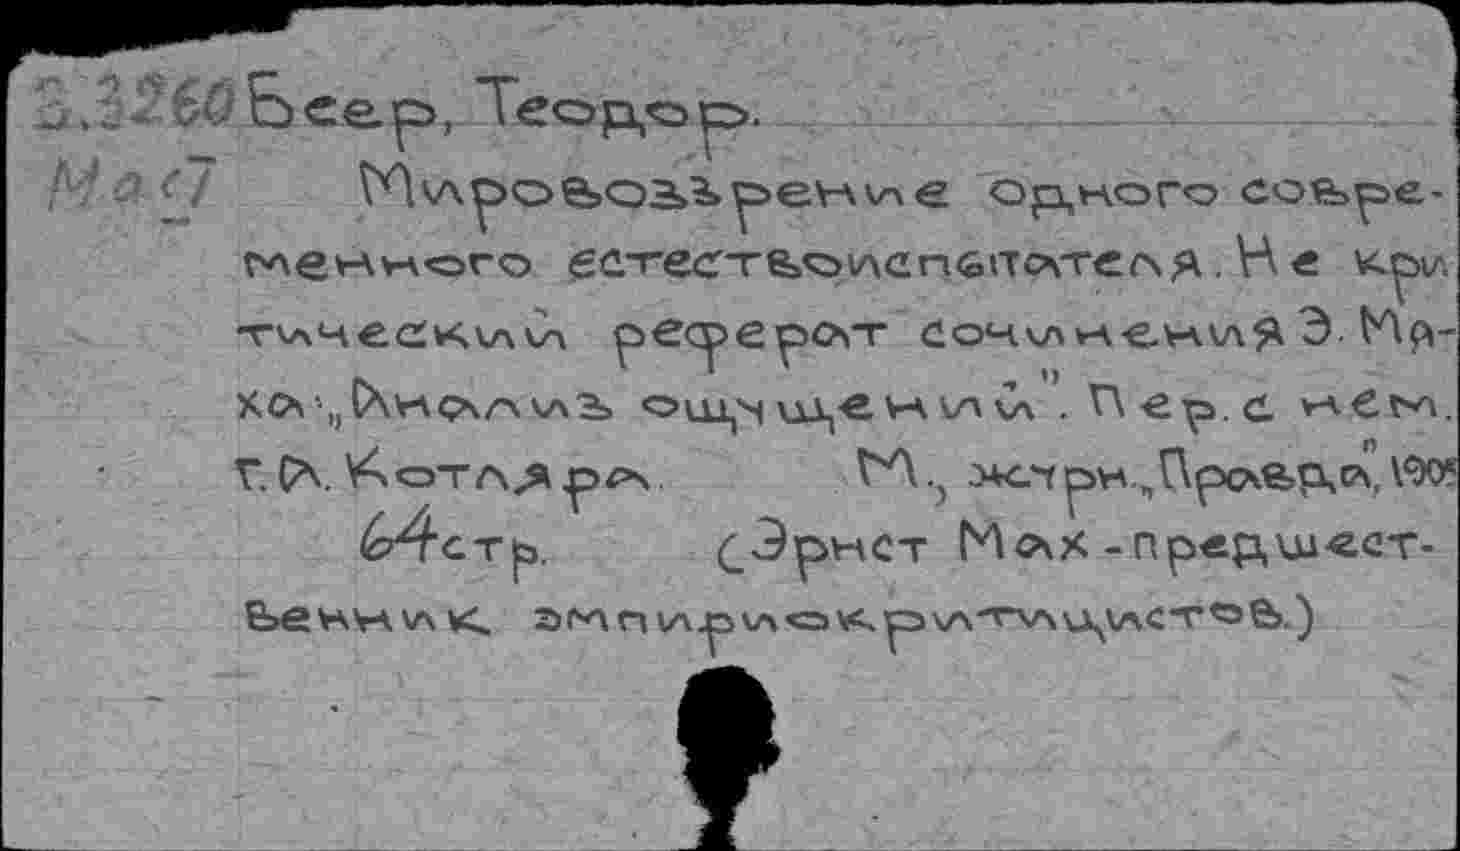 3.3260 Беер, Теодор.
Мировоззрение одного совре-
менного естествоиспытателя. Не кри
тический реферат сочинения Э. Ма-
ха: „Анализ ощущений". Пер. с нем.
Г. А. Котляра. М., журн. „Правда",
64 стр. (Эрнст Мах - предшест-
венник эмпириокритицистов.)